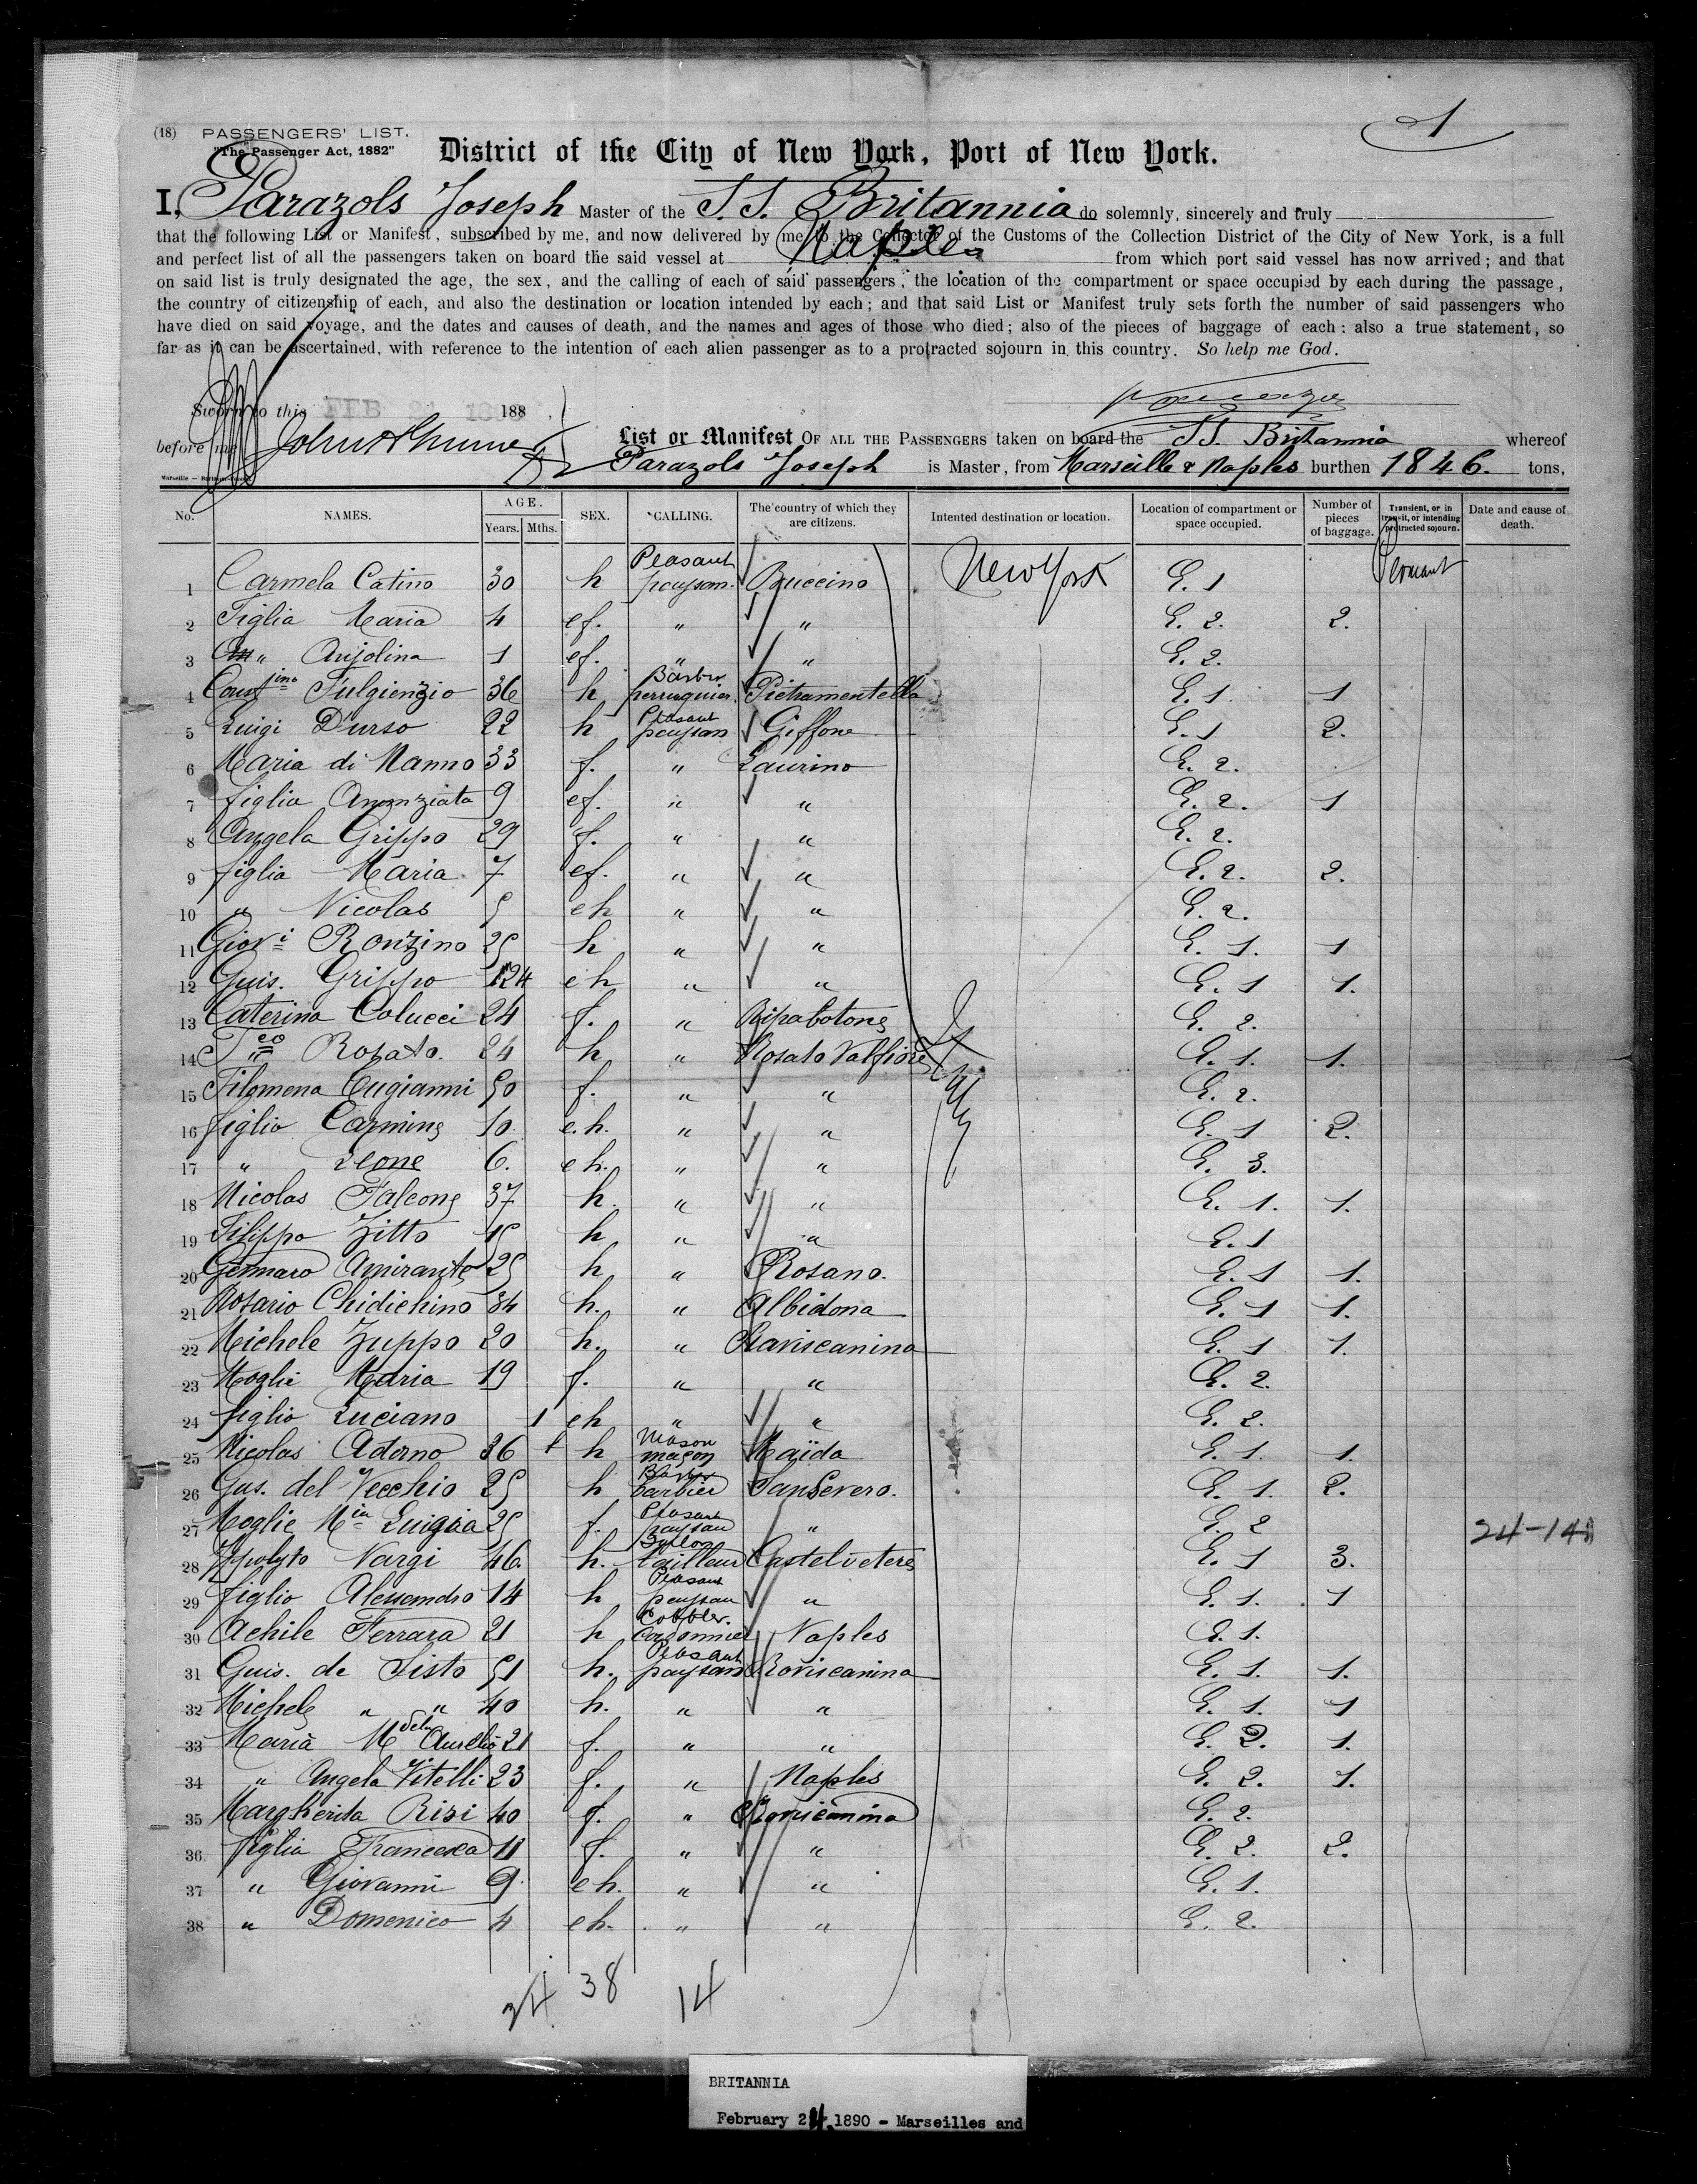 1
(18) PASSENGERS' LIST.
"The Passenger Act, 1882"
District of the City of New York, Port of New York.
I, Parazols Joseph Master of the S.S. Britannia do solemnly, sincerely and truly
that the following List or Manifest, subscribed by me, and now delivered by me to the Collector of the Customs of the Collection District of the City of New York, is a full
and perfect list of all the passengers taken on board the said vessel at Naples from which port said vessel has now arrived; and that
on said list is truly designated the age, the sex, and the calling of each of said passengers, the location of the compartment or space occupied by each during the passage,
the country of citizenship of each, and also the destination or location intended by each; and that said List or Manifest truly sets forth the number of said passengers who
have died on said voyage, and the dates and causes of death, and the names and ages of those who died; also of the pieces of baggage of each: also a true statement, so
far as it can be ascertained, with reference to the intention of each alien passenger as to a protracted sojourn in this country. So help me God.
Sworn to this FEB 188
before me
List or Manifest OF ALL THE PASSENGERS taken on board the S.S. Britannia whereof
Parazols Joseph is Master, from Marseille & Naples burthen 1846. tons,
No. NAMES. AGE. Years. Mths. SEX. CALLING. The country of which they are citizens. Intented destination or location. Location of compartment or space occupied. Number of pieces of baggage. Transient, or in transit, or intending protracted sojourn. Date and cause of death.
1 Carmela Catino 30 h Peasant paysan. Buccino New York E. 1
2 Figlia Maria 4 ef. " " E. 2. 2.
3 " Anjolina 1 ef. " " E. 2.
4 Fulgienzio 36 h Barber perruquier. Pietramentella E. 1 1
5 Luigi Durso 22 h Peasant paysan Giffone E. 1 2.
6 Maria di Nanno 33 f. " Laurino E. 2.
7 figlia Anunziata 9 ef. " " E. 2. 1
8 Angela Grippo 29 f. " " E. 2.
9 figlia Maria 7 ef. " " E. 2. 2.
10 " Nicolas 5 eh " " E. 2.
11 Giovi Ronzino 25 h " " E. 1. 1
12 Guis. Grippo eh " " E. 1 1.
13 Caterina Colucci 24 f. " Ripabotone E. 2.
14 Rosato. 24 h " Rosato Valfiore E. 1. 1.
15 Filomena Cugianni 50 f. " " E. 2.
16 figlio Carmine 10 e.h. " " E. 1 2.
17 " Leone 6. eh. " " E. 3.
18 Nicolas Falcone 37 h. " " E. 1. 1.
19 Filippo Zitto 15 h " " E. 1
20 Gennaro Amirante 25 h " Rosano. E. 1 1.
21 Rosario Chidichino 34 h. " Albidona E. 1 1.
22 Michele Zuppo 20 h. " Raviscanina E. 1 1.
23 Moglie Maria 19 f. " " E. 2.
24 figlio Luciano 1 eh " " E. 2.
25 Nicolas Adorno 36 h Mason maçon Maïda E. 1. 1.
26 Gus. del Vecchio 25 h Barber barbier San Severo. E. 1. 2.
27 Moglie Mia Luigia 25 f. Peasant paysan " E. 2 24-14
28 Ippolyto Nargi 46 h. tailleur Castelvetere E. 1 3.
29 figlio Alessandro 14 h Peasant paysan " E. 1. 1
30 Achile Ferrara 21 h Cobbler. Cordonnier Naples E. 1.
31 Guis. de Sisto 51 h. Peasant paysan Roviscanina E. 1. 1.
32 Michele " " 40 h. " " E. 1. 1
33 Maria Mdel Aurelio 21 f. " " E. 2. 1.
34 " Angela Vitelli 23 f. " Naples E. 2. 1.
35 Margherida Risi 40 f. " E. 2.
36 figlia Francesca 11 f. " " E. 2. 2.
37 " Giovanni 9 eh. " " E. 1.
38 " Domenico 4 eh. " " E. 2.
34 38 14
BRITANNIA
February 24, 1890 - Marseilles and